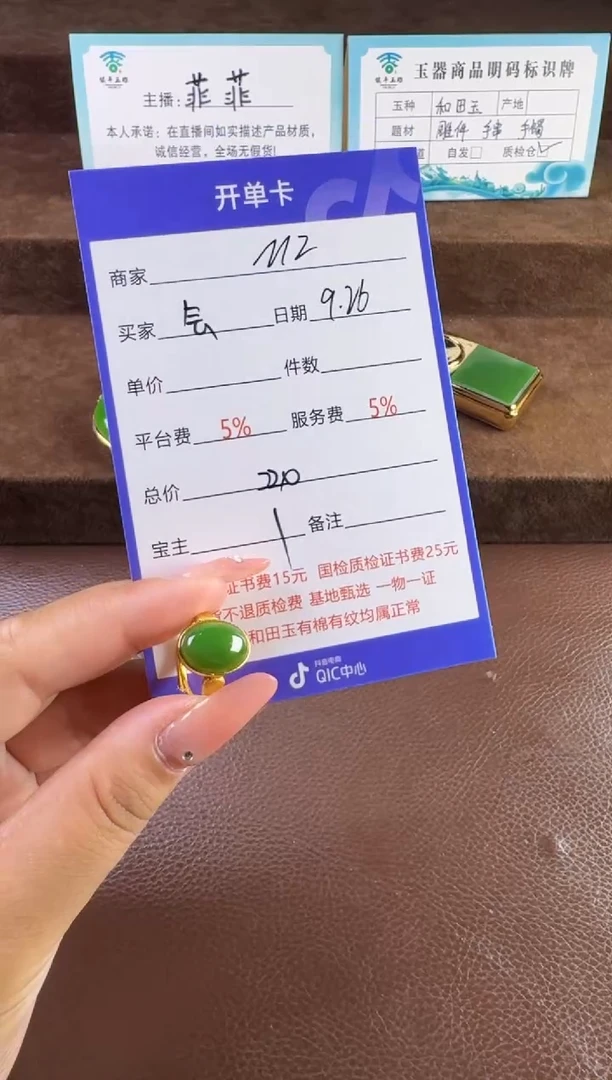 主播:菲菲
本人承诺:在直播间如实描述产品材质,
诚信经营,全场无假货!
玉器商品明码标识牌
玉种 和田玉 产地
题材 雕件 手串 手镯
道 自发□ 质检仓☑
开单卡
商家 112
买家 日期 9.26
单价 件数
平台费 5% 服务费 5%
总价 220
宝主 备注
证书费15元 国检质检证书费25元
不退质检费 基地甄选 一物一证
和田玉有棉有纹均属正常
抖音电商
QIC中心